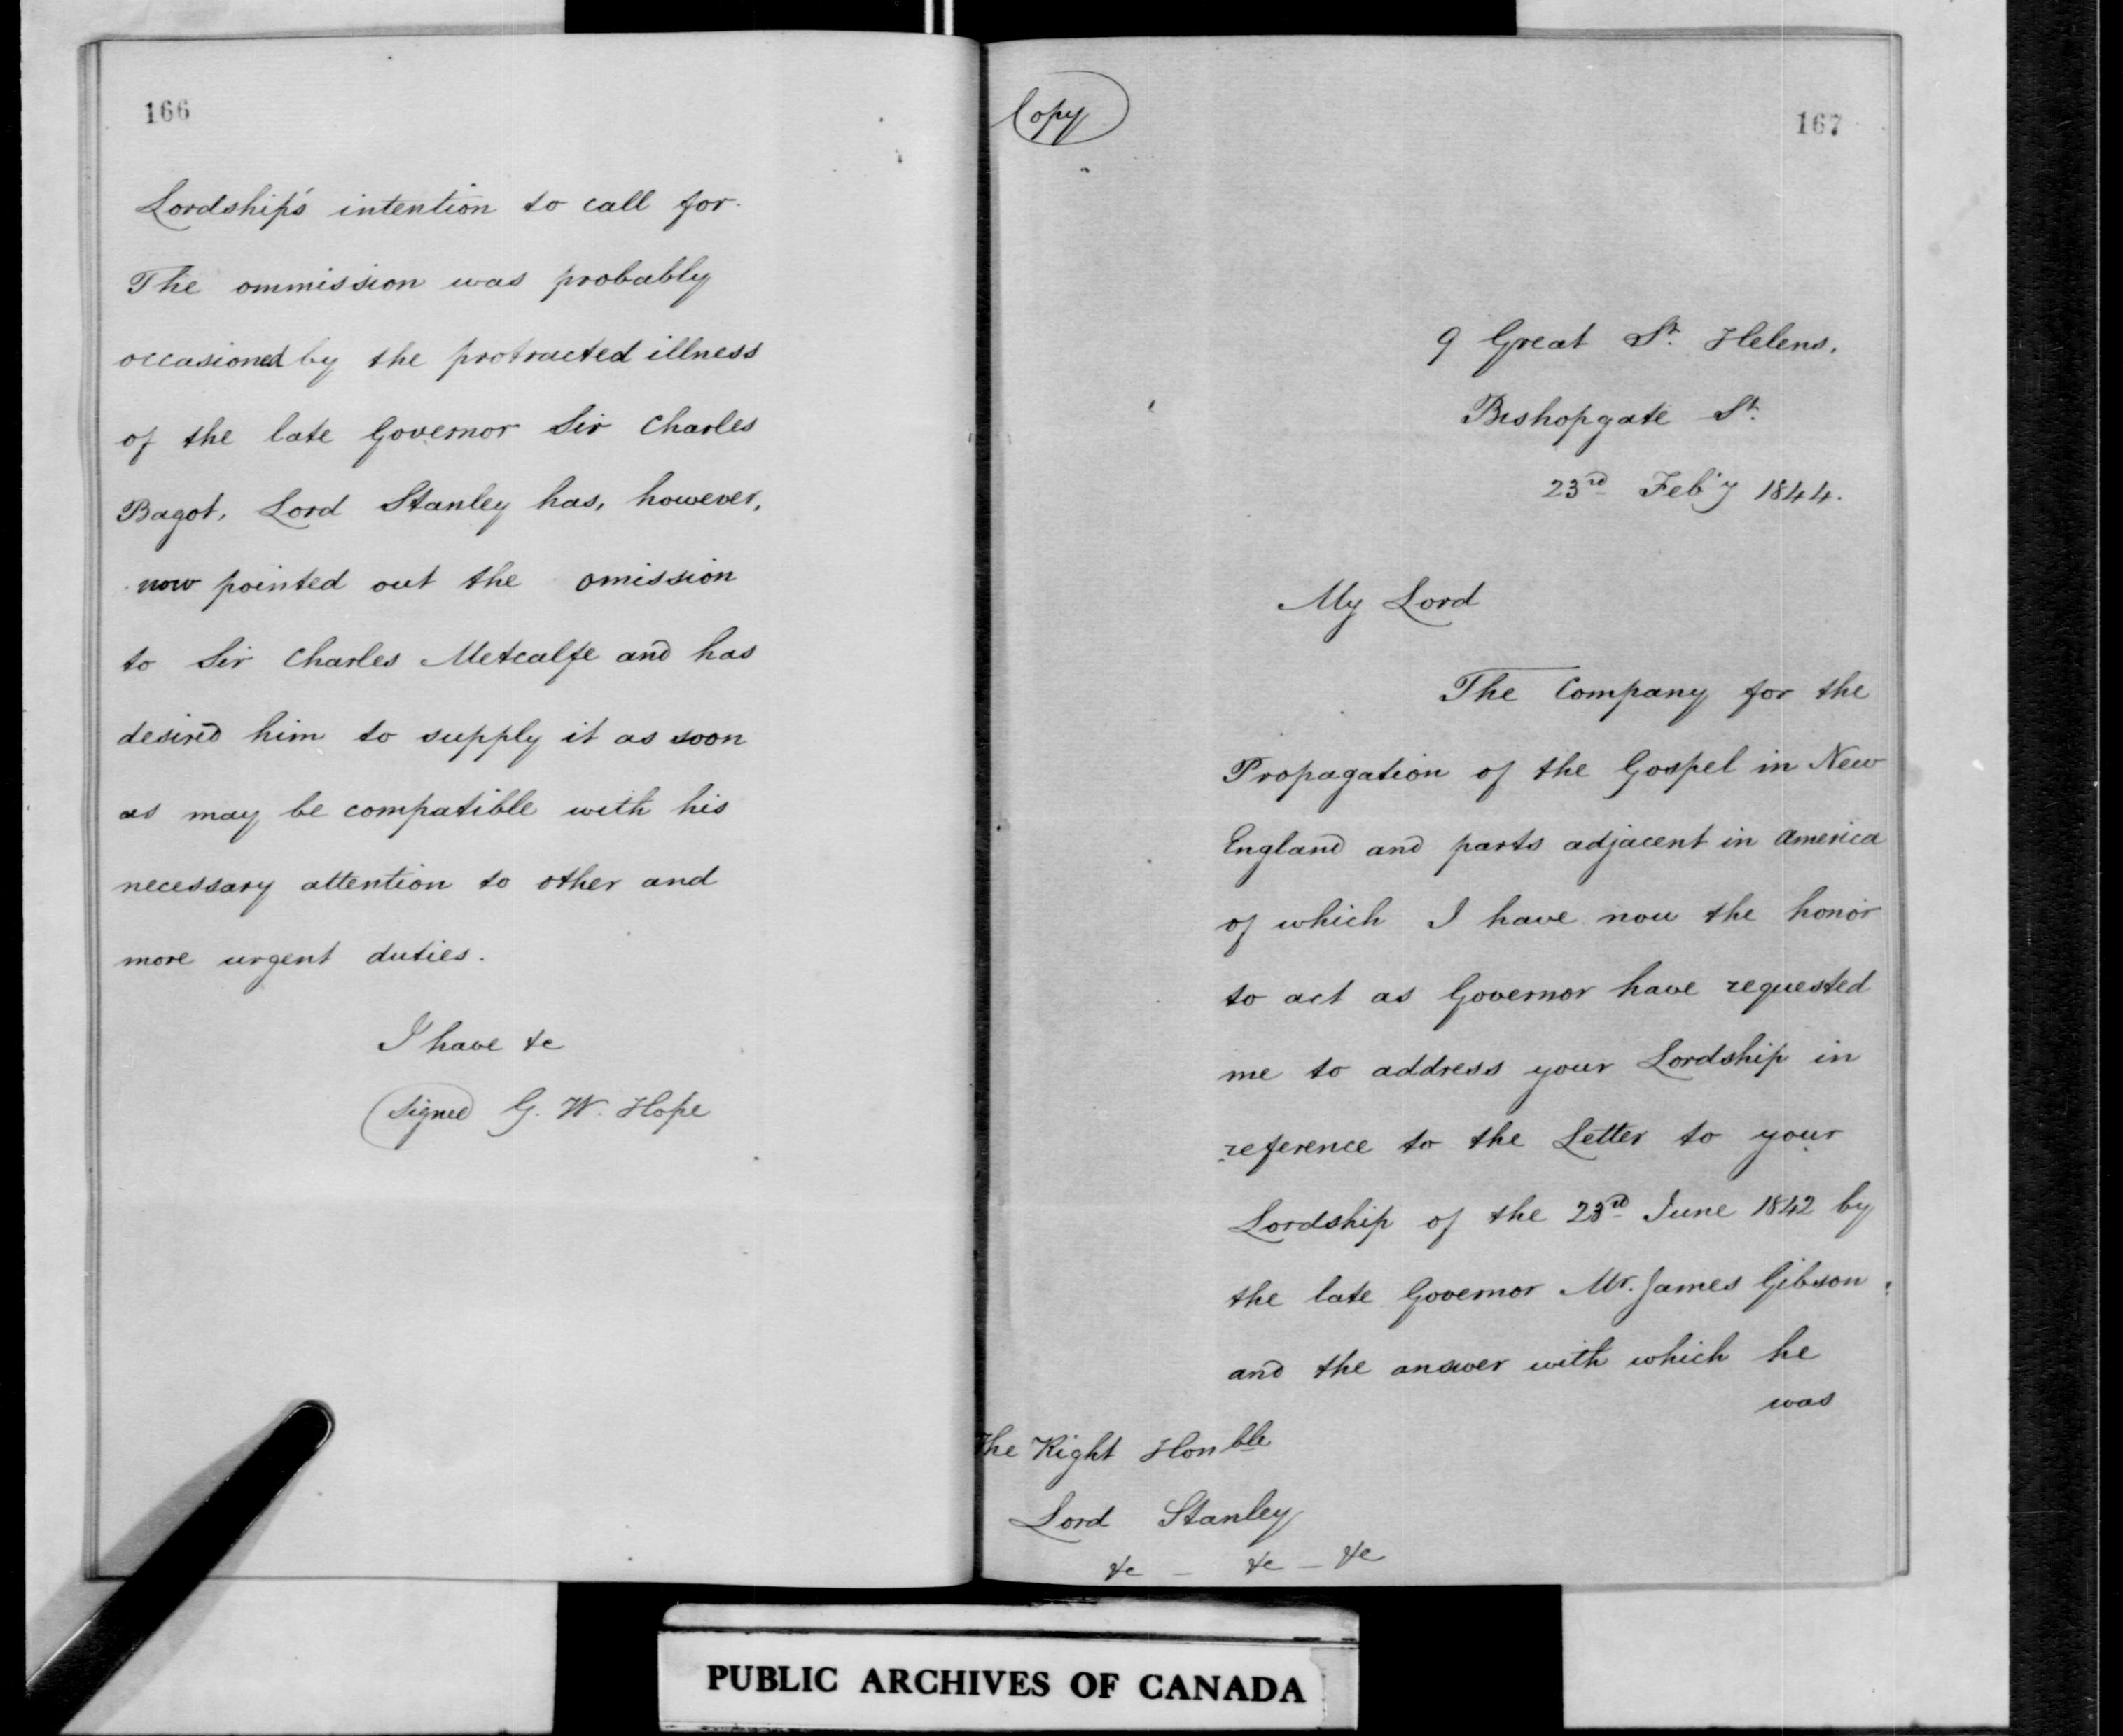 166
Lordship's intention to call for.
The ommission was probably
occasioned by the protracted illness
of the late Governor Sir Charles
Bagot. Lord Stanley has, however,
now pointed out the omission
to Sir Charles Metcalfe and has
desired him to supply it as soon
as may be compatible with his
necessary attention to other and
more urgent duties.
I have &c
Signed G. W. Hope
Copy
167
9 Great St. Helens,
Bishopgate St.
23rd Feb'y 1844.
My Lord
The Company for the
Propagation of the Gospel in New
England and parts adjacent in America
of which I have now the honor
to act as Governor have requested
me to address your Lordship in
reference to the Letter to your
Lordship of the 23rd June 1842 by
the late Governor Mr. James Gibson,
and the answer with which he
was
The Right Honble
Lord Stanley
&c - &c - &c
PUBLIC ARCHIVES OF CANADA